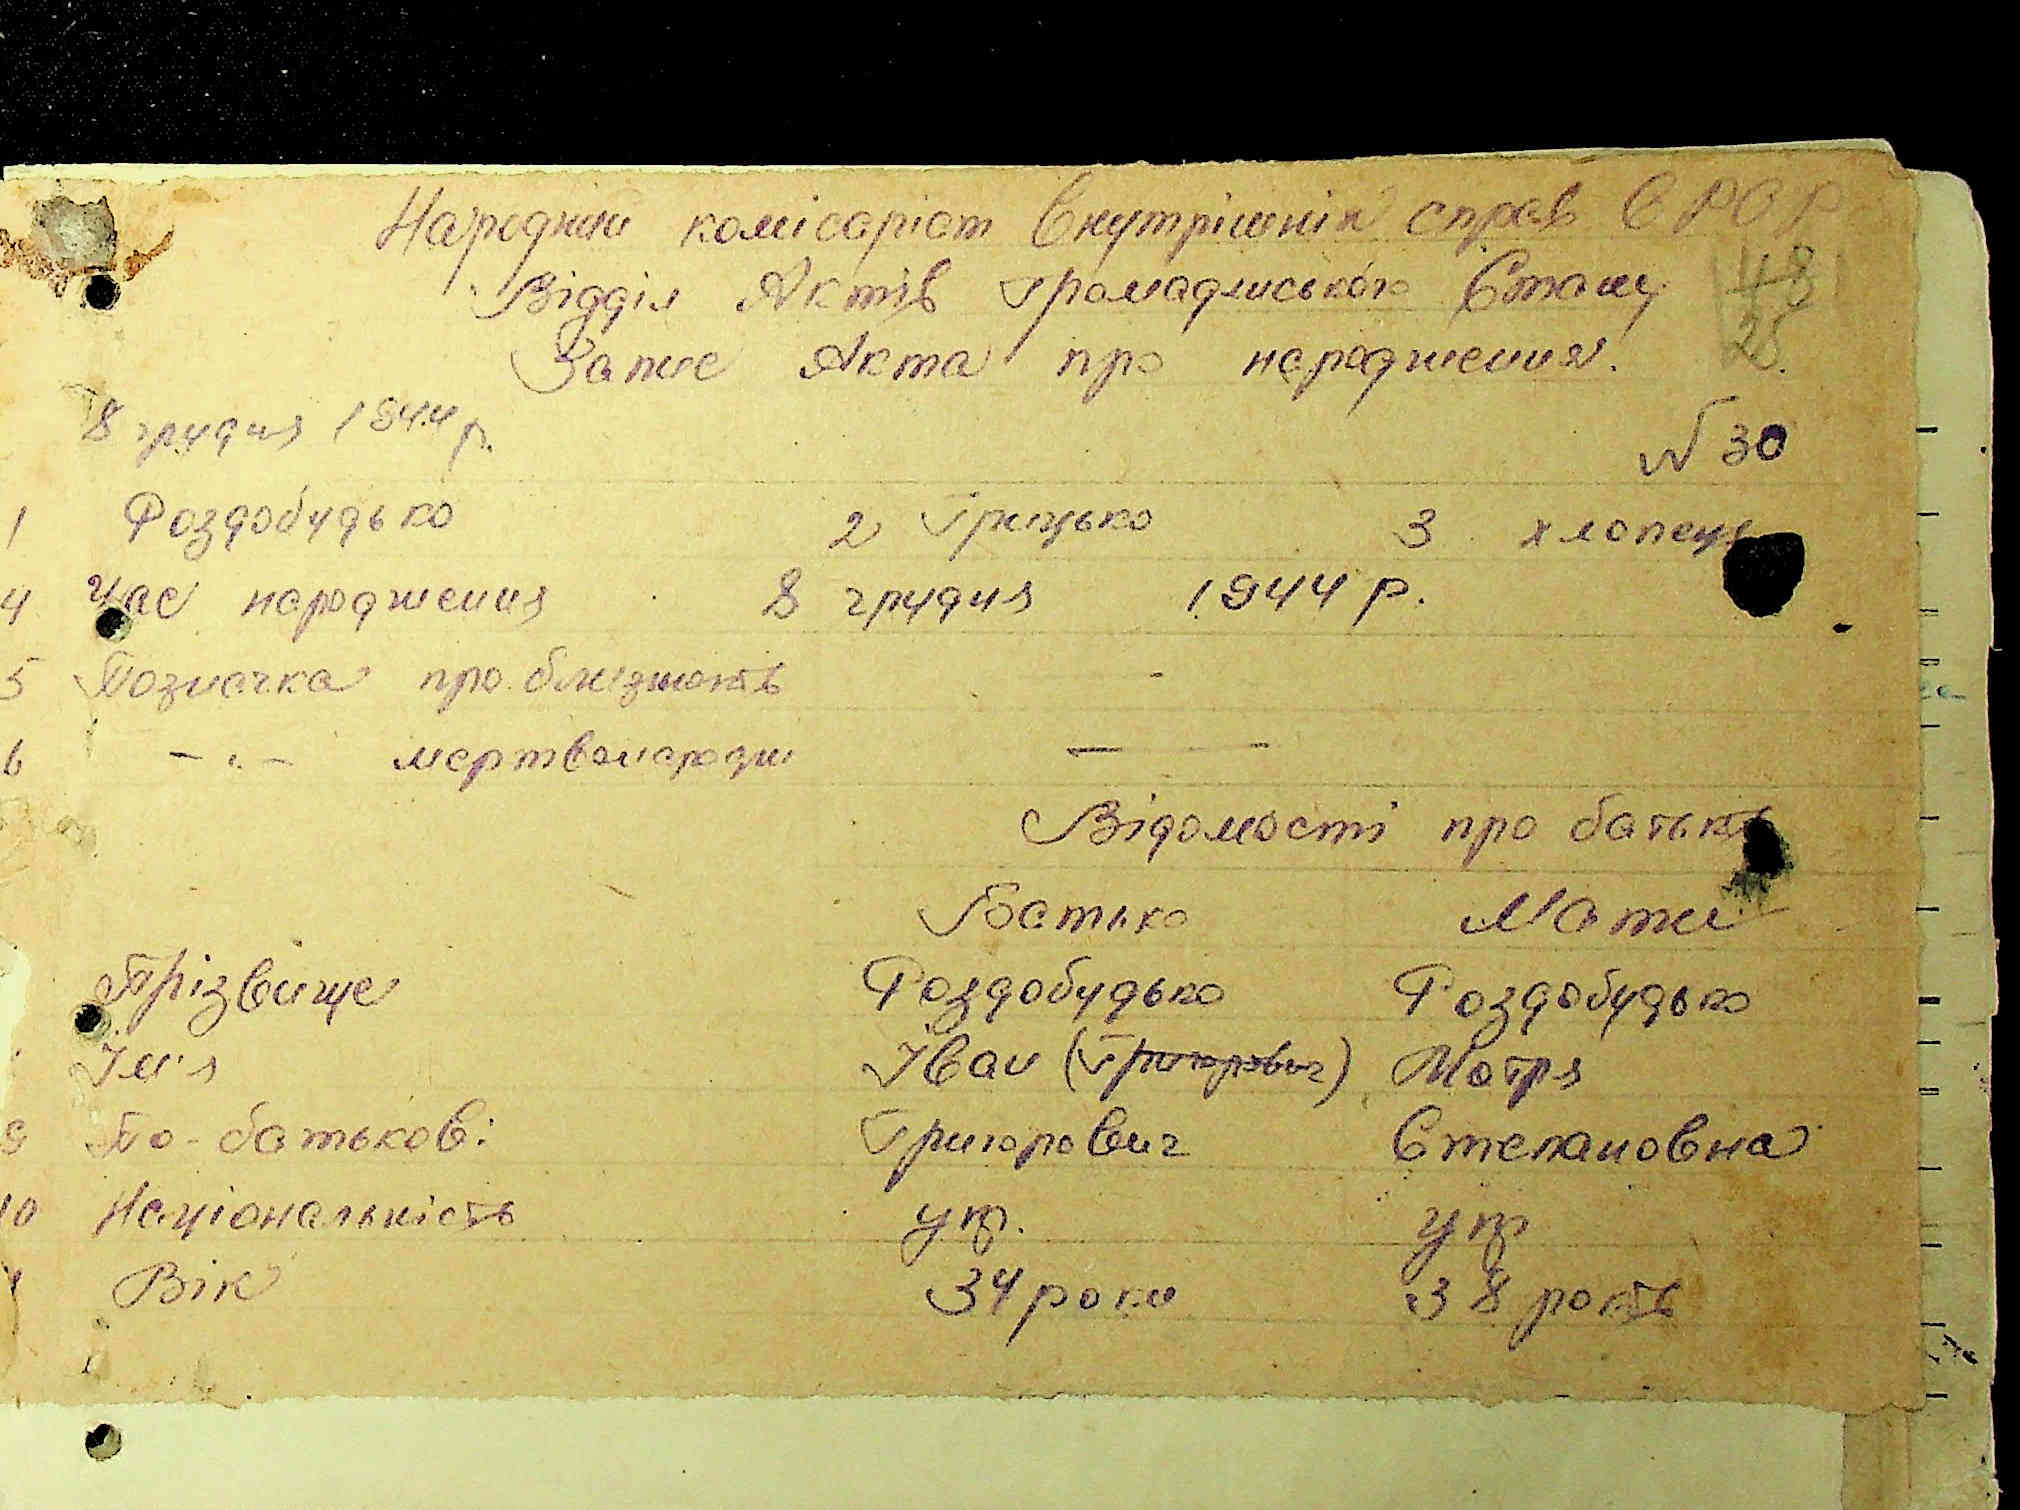 Народний комісаріат Внутрішніх справ СРСР
Відділ Актів Громадянського Стану
48
Запис Акта про народження.
25
8 грудня 1944 р.
№ 30
1 Роздобудько 2 Грицько 3 хлопець
4 Час народження 8 грудня 1944 р.
5 Позначка про близність -
6 -"- мертвонародж —
Відомості про батьків
Батько Мати
Прізвище Роздобудько Роздобудько
Ім'я Іван (Григорович) Мотря
9 По-батькові Григорович Степановна
10 Національність укр. укр
Вік 34 роки 38 років